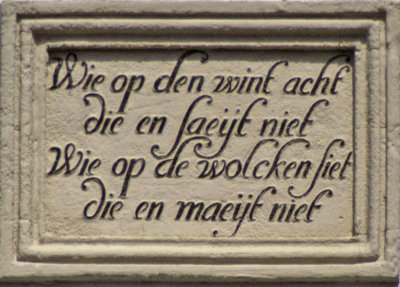 Wie op den wint acht
die en saeijt niet
Wie op de wolcken siet
die en maeijt niet